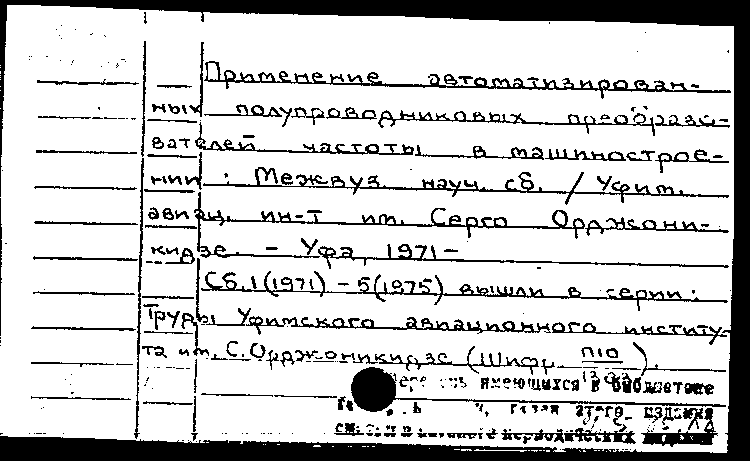 Применение автоматизирован-
ных полупроводниковых преобразо-
вателей частоты в машинострое-
нии : Межвуз. науч. сб. / Уфим.
авиац. ин-т им. Серго Орджони-
кидзе. - Уфа, 1971-
Сб. 1(1971) - 5(1975) вышли в серии:
Труды Уфимского авиационного институ-
та им. С. Орджоникидзе (Шифр П10
).
имеющихся в библиотеке
этого издания
периодических изданий